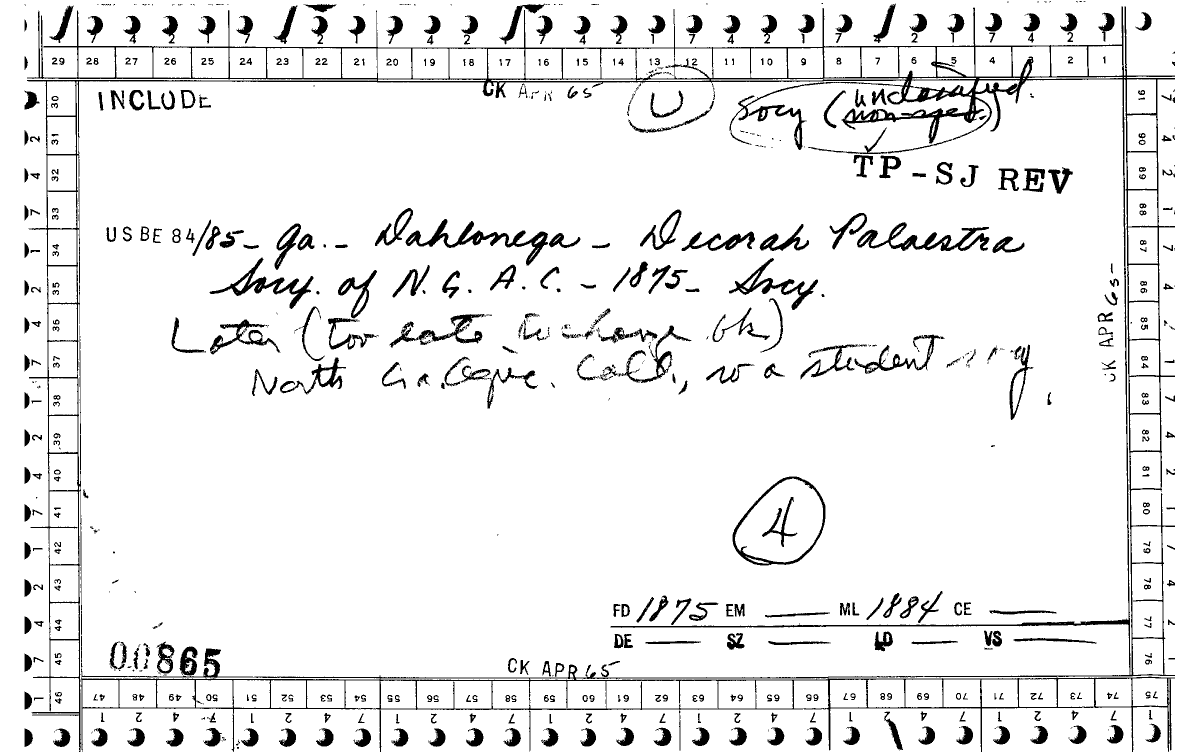 7 4 2 1 7 4 2 1 7 4 2 1 7 4 2 1 7 4 2 1 7 4 2 1 7 4 2 1
29 28 27 26 25 24 23 22 21 20 19 18 17 16 15 14 13 12 11 10 9 8 7 6 5 4 3 2 1
INCLUDE
CK APR 65
U
Socy (non-spec.) unclassified.
TP-SJ REV
USBE 84/85- Ga. - Dahlonega - Decorah Palaestra
Socy. of N. G. A. C. - 1875- Socy.
Later (too late to change bk)
North Ga. Agric. Coll., so a student socy.
CK APR 65-
4
FD 1875 EM ML 1884 CE
DE SZ LD VS
00865
CK APR 65
30 31 32 33 34 35 36 37 38 39 40 41 42 43 44 45 46
91 90 89 88 87 86 85 84 83 82 81 80 79 78 77 76
47 48 49 50 51 52 53 54 55 56 57 58 59 60 61 62 63 64 65 66 67 68 69 70 71 72 73 74 75
1 2 4 7 1 2 4 7 1 2 4 7 1 2 4 7 1 2 4 7 1 2 4 7 1 2 4 7 1